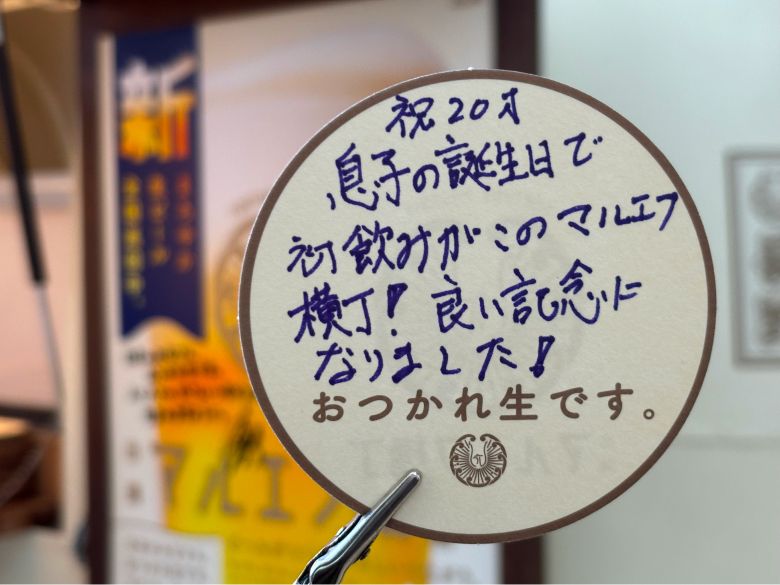 祝20才
息子の誕生日で
初飲みがこのマルエフ
横丁!良い記念に
なりました!
おつかれ生です。
新
マルエフ